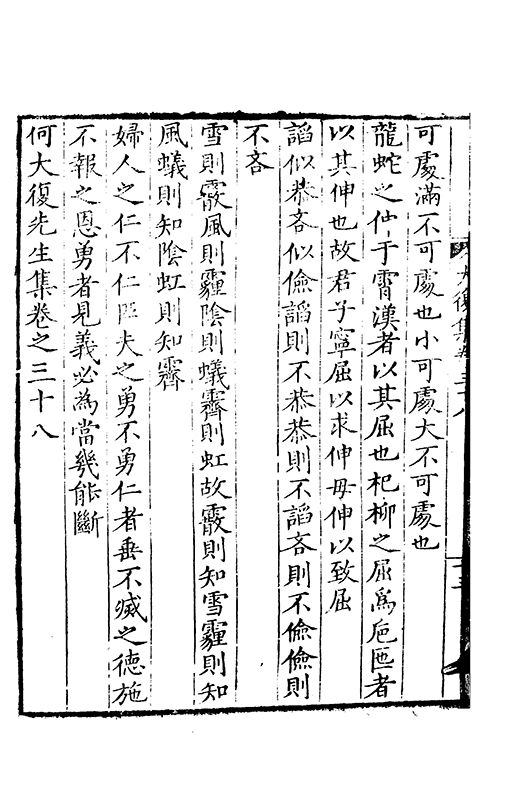 可處滿不可處也小可處大不可處也
龍蛇之伸于霄漢者以其屈也杞柳之屈爲巵匜者
以其伸也故君子寧屈以求伸毋伸以致屈
謟似恭吝似儉謟則不恭恭則不謟吝則不儉儉則
不吝
雪則霰風則霾陰則蟻霽則虹故霰則知雪霾則知
風蟻則知陰虹則知霽
婦人之仁不仁匹夫之勇不勇仁者垂不滅之德施
不報之恩勇者見義必為當幾能斷
何大復先生集卷之三十八